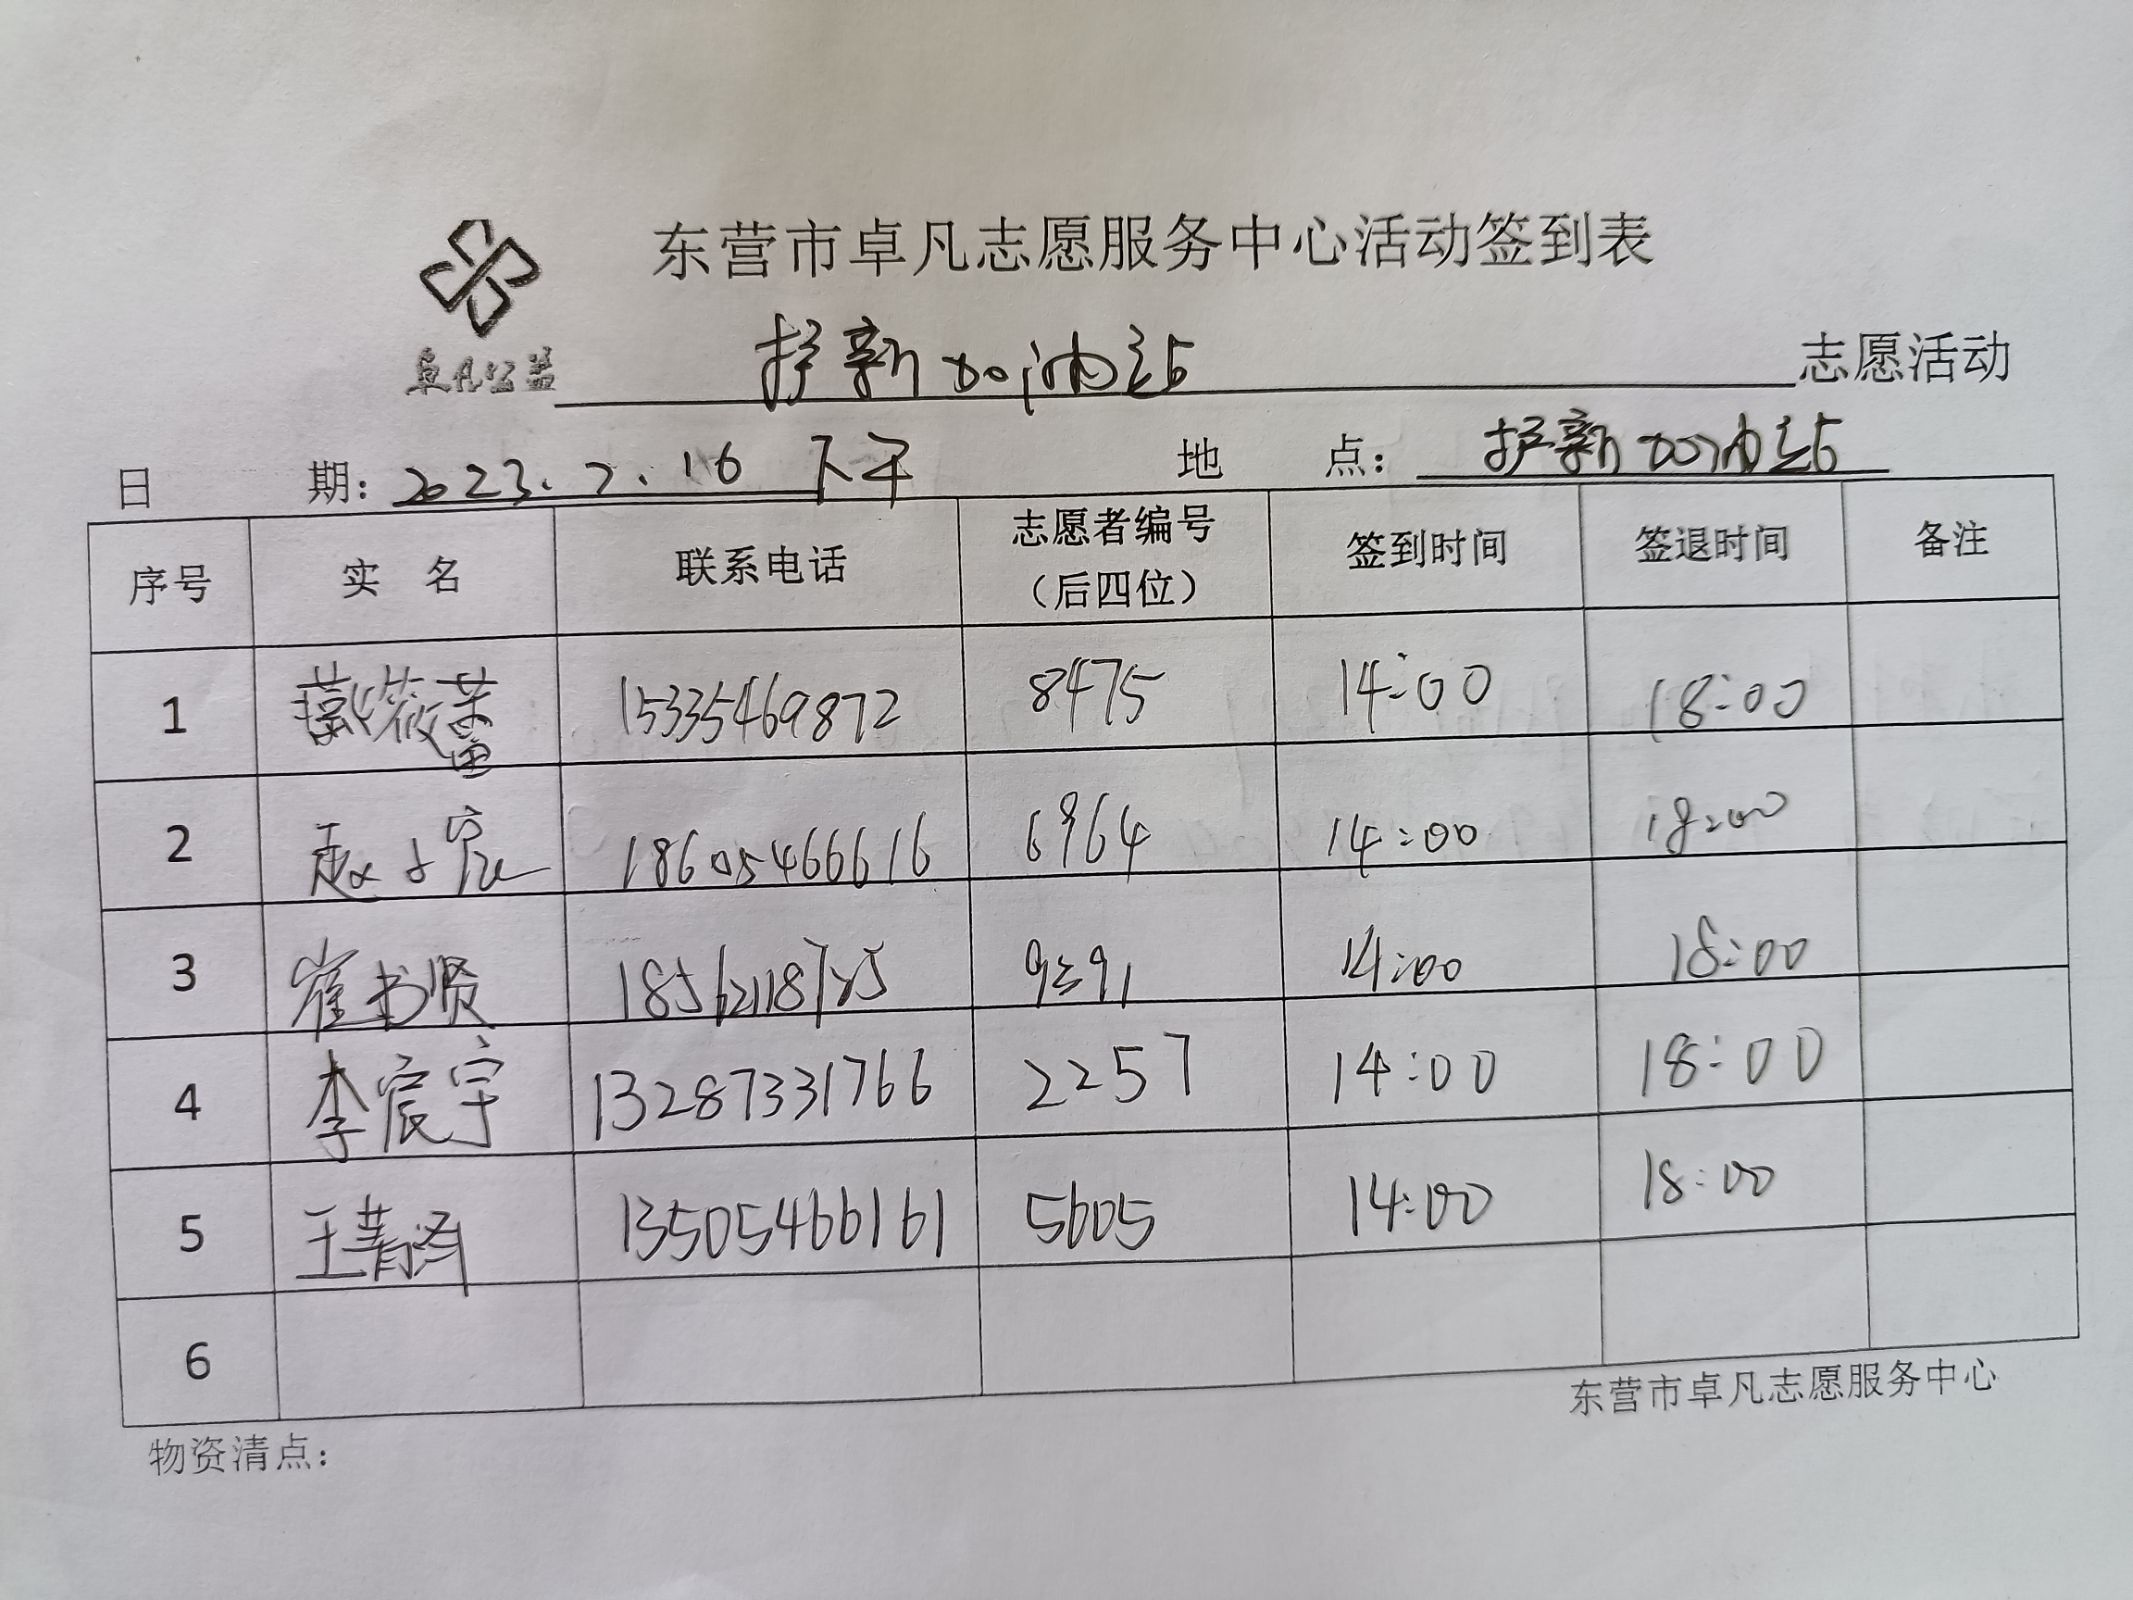 东营市卓凡志愿服务中心活动签到表
卓凡公益 护新加油站 志愿活动
日 期：2023.2.16 下午 地 点：护新加油站
序号 实 名 联系电话 志愿者编号（后四位） 签到时间 签退时间 备注
1 15335469872 8475 14:00 18:00
2 18605466616 6964 14:00 18:00
3 崔书贤 14:00 18:00
4 李宸宇 13287331766 2257 14:00 18:00
5 王菁 13505466161 5605 14:00 18:00
6
东营市卓凡志愿服务中心
物资清点：